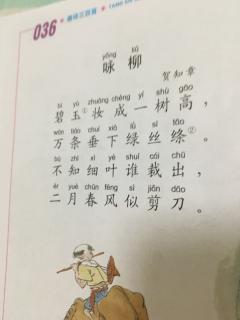 036 唐诗三百首 TANG SHI
yǒng liǔ
咏 柳
贺知章
bì yù zhuāng chéng yí shù gāo
碧玉①妆成一树高，
wàn tiáo chuí xià lǜ sī tāo
万条垂下绿丝绦②。
bù zhī xì yè shéi cái chū
不知细叶谁裁出，
èr yuè chūn fēng sì jiǎn dāo
二月春风似剪刀。